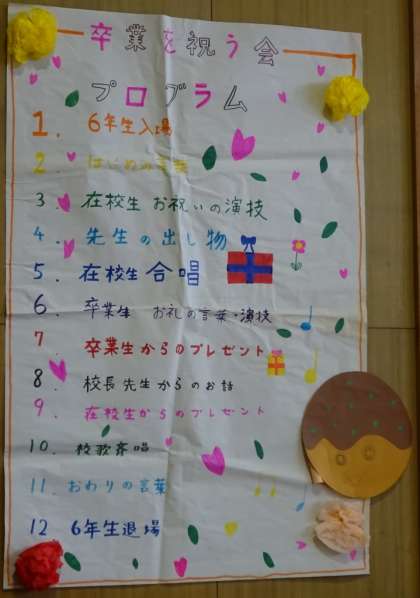 卒業を祝う会
プログラム
1. 6年生入場
2. はじめの言葉
3. 在校生 お祝いの演技
4. 先生の出し物
5. 在校生 合唱
6. 卒業生 お礼の言葉・演技
7 卒業生からのプレゼント
8. 校長先生からのお話
9. 在校生からのプレゼント
10. 校歌斉唱
11. おわりの言葉
12 6年生退場